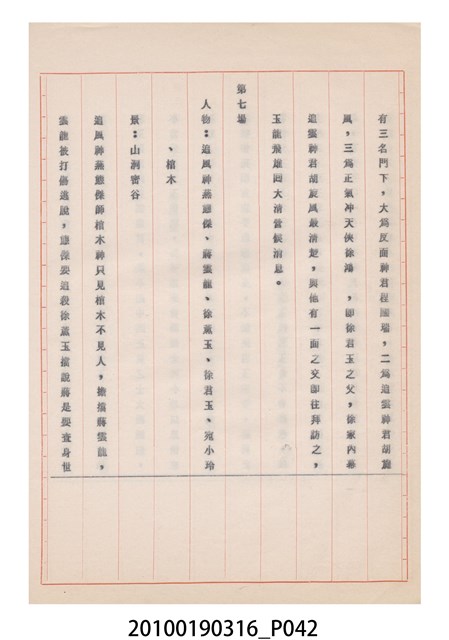 有三名門下，大爲反面神君程國瑞，二爲追雲神君胡旋
風，三爲正氣冲天俠徐鴻　，卽徐君玉之父，徐家內幕
追雲神君胡旋風最清楚，與他有一面之交卽往拜訪之，
玉龍飛雄回大清宮候消息。
第七場
人物：追風神燕應傑、蔣雲龍、徐薰玉、徐君玉、宛小玲
、棺木
景：山洞密谷
追風神燕應傑師棺木神只見棺木不見人，擔擋蔣雲龍，
雲龍被打傷逃脫，應傑要追殺徐薰玉擋說蔣是要查身世
20100190316_P042